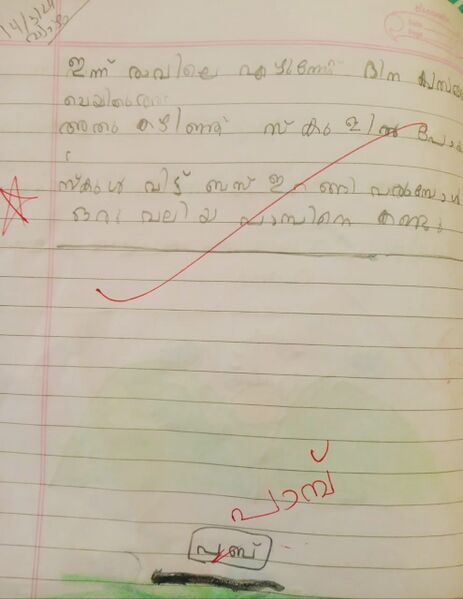 14/3/24
വ്യാഴം
ഇന്ന് രാവിലെ എഴുന്നേറ്റ് ദിന
അതു കഴിഞ്ഞ് സ്കൂളിൽ പോ
സ്കൂൾ വിട്ട് ബസ് ഇറങ്ങി വന്നപ്പോൾ
ഒരു വലിയ പാമ്പിനെ കണ്ടു
പാമ്പ്
പബ്